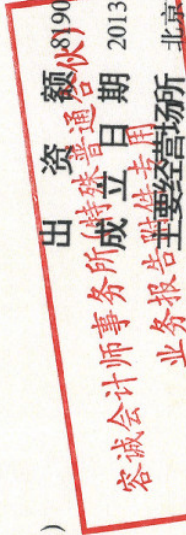 )
出资额 8190
成立日期 2013
主要经营场所 北京
容诚会计师事务所(特殊普通合伙)
业务报告附件专用